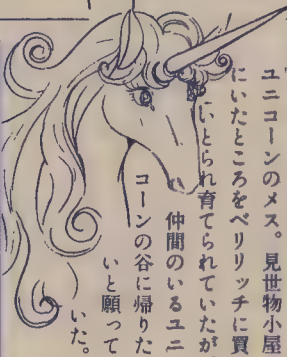 ユニコーンのメス。見世物小屋
にいたところをベリリッチに買
いとられ育てられていたが
仲間のいるユニ
コーンの谷に帰りた
いと願って
いた。